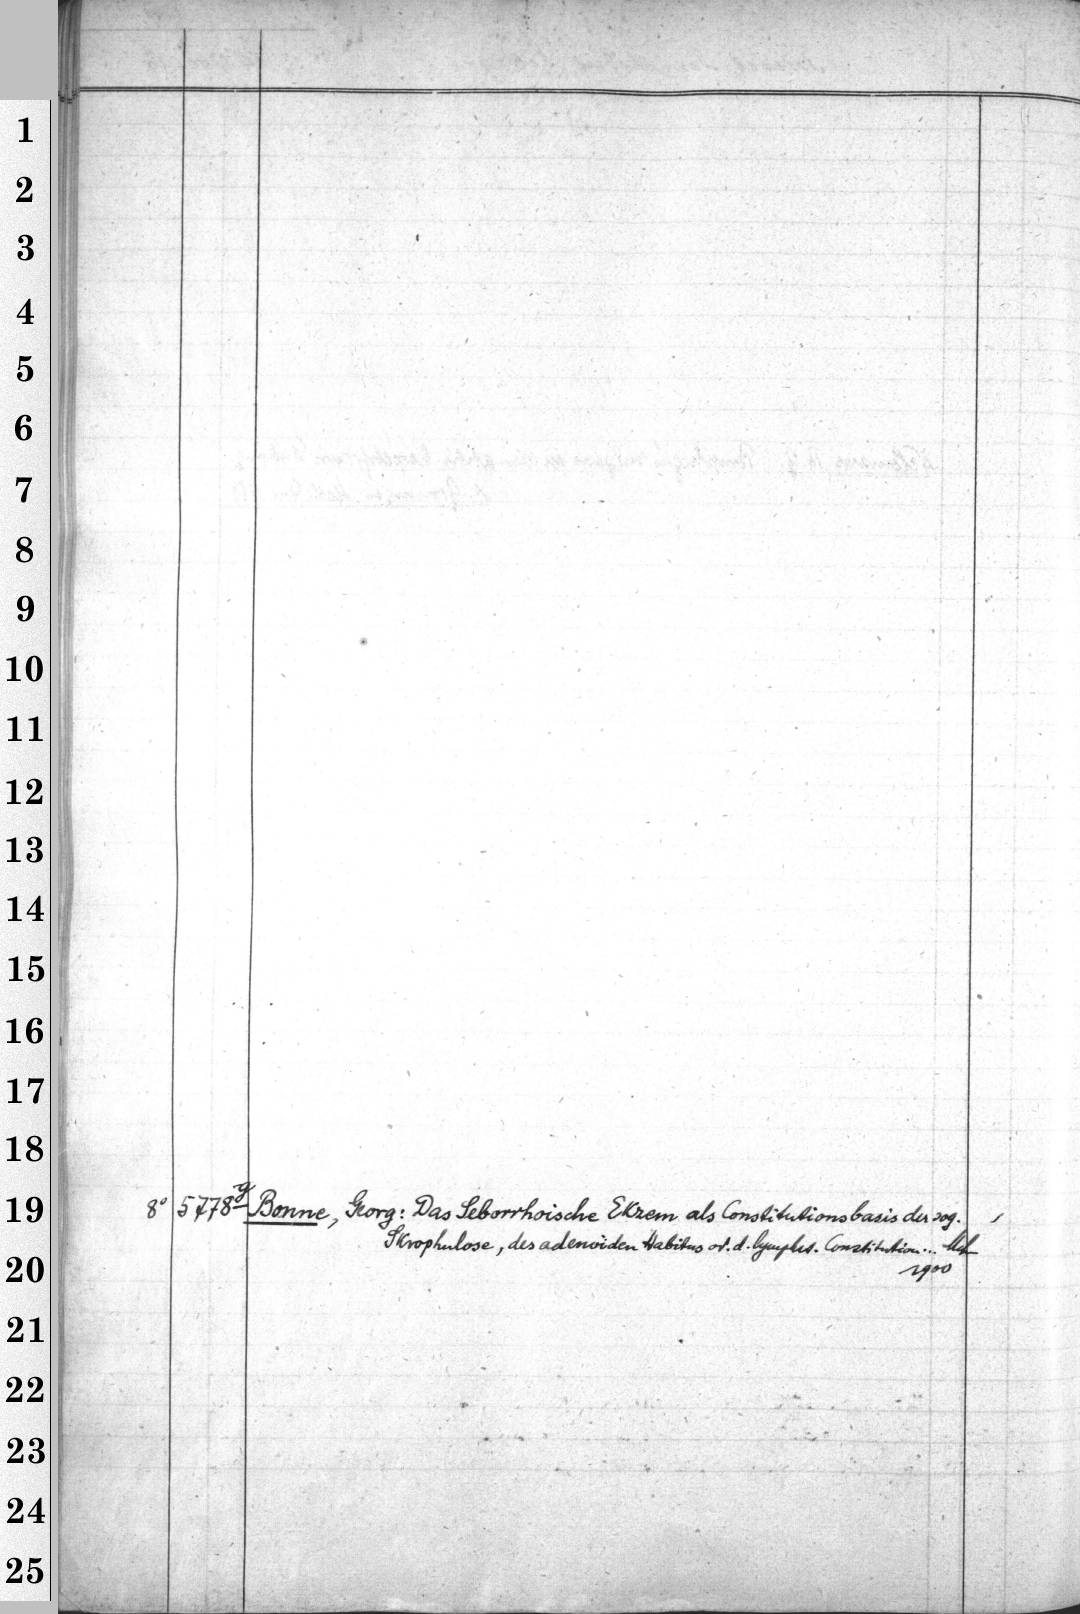 1
2
3
4
5
6
7
8
9
10
11
12
13
14
15
16
17
18
19
20
21
22
23
24
25
8° 5778 g Bonne, Georg: Das Seborrhoische Ekzem als Constitutionsbasis der sog.
Skrophulose, des adenoiden Habitus od. d. lymphat. Constitution...
1900